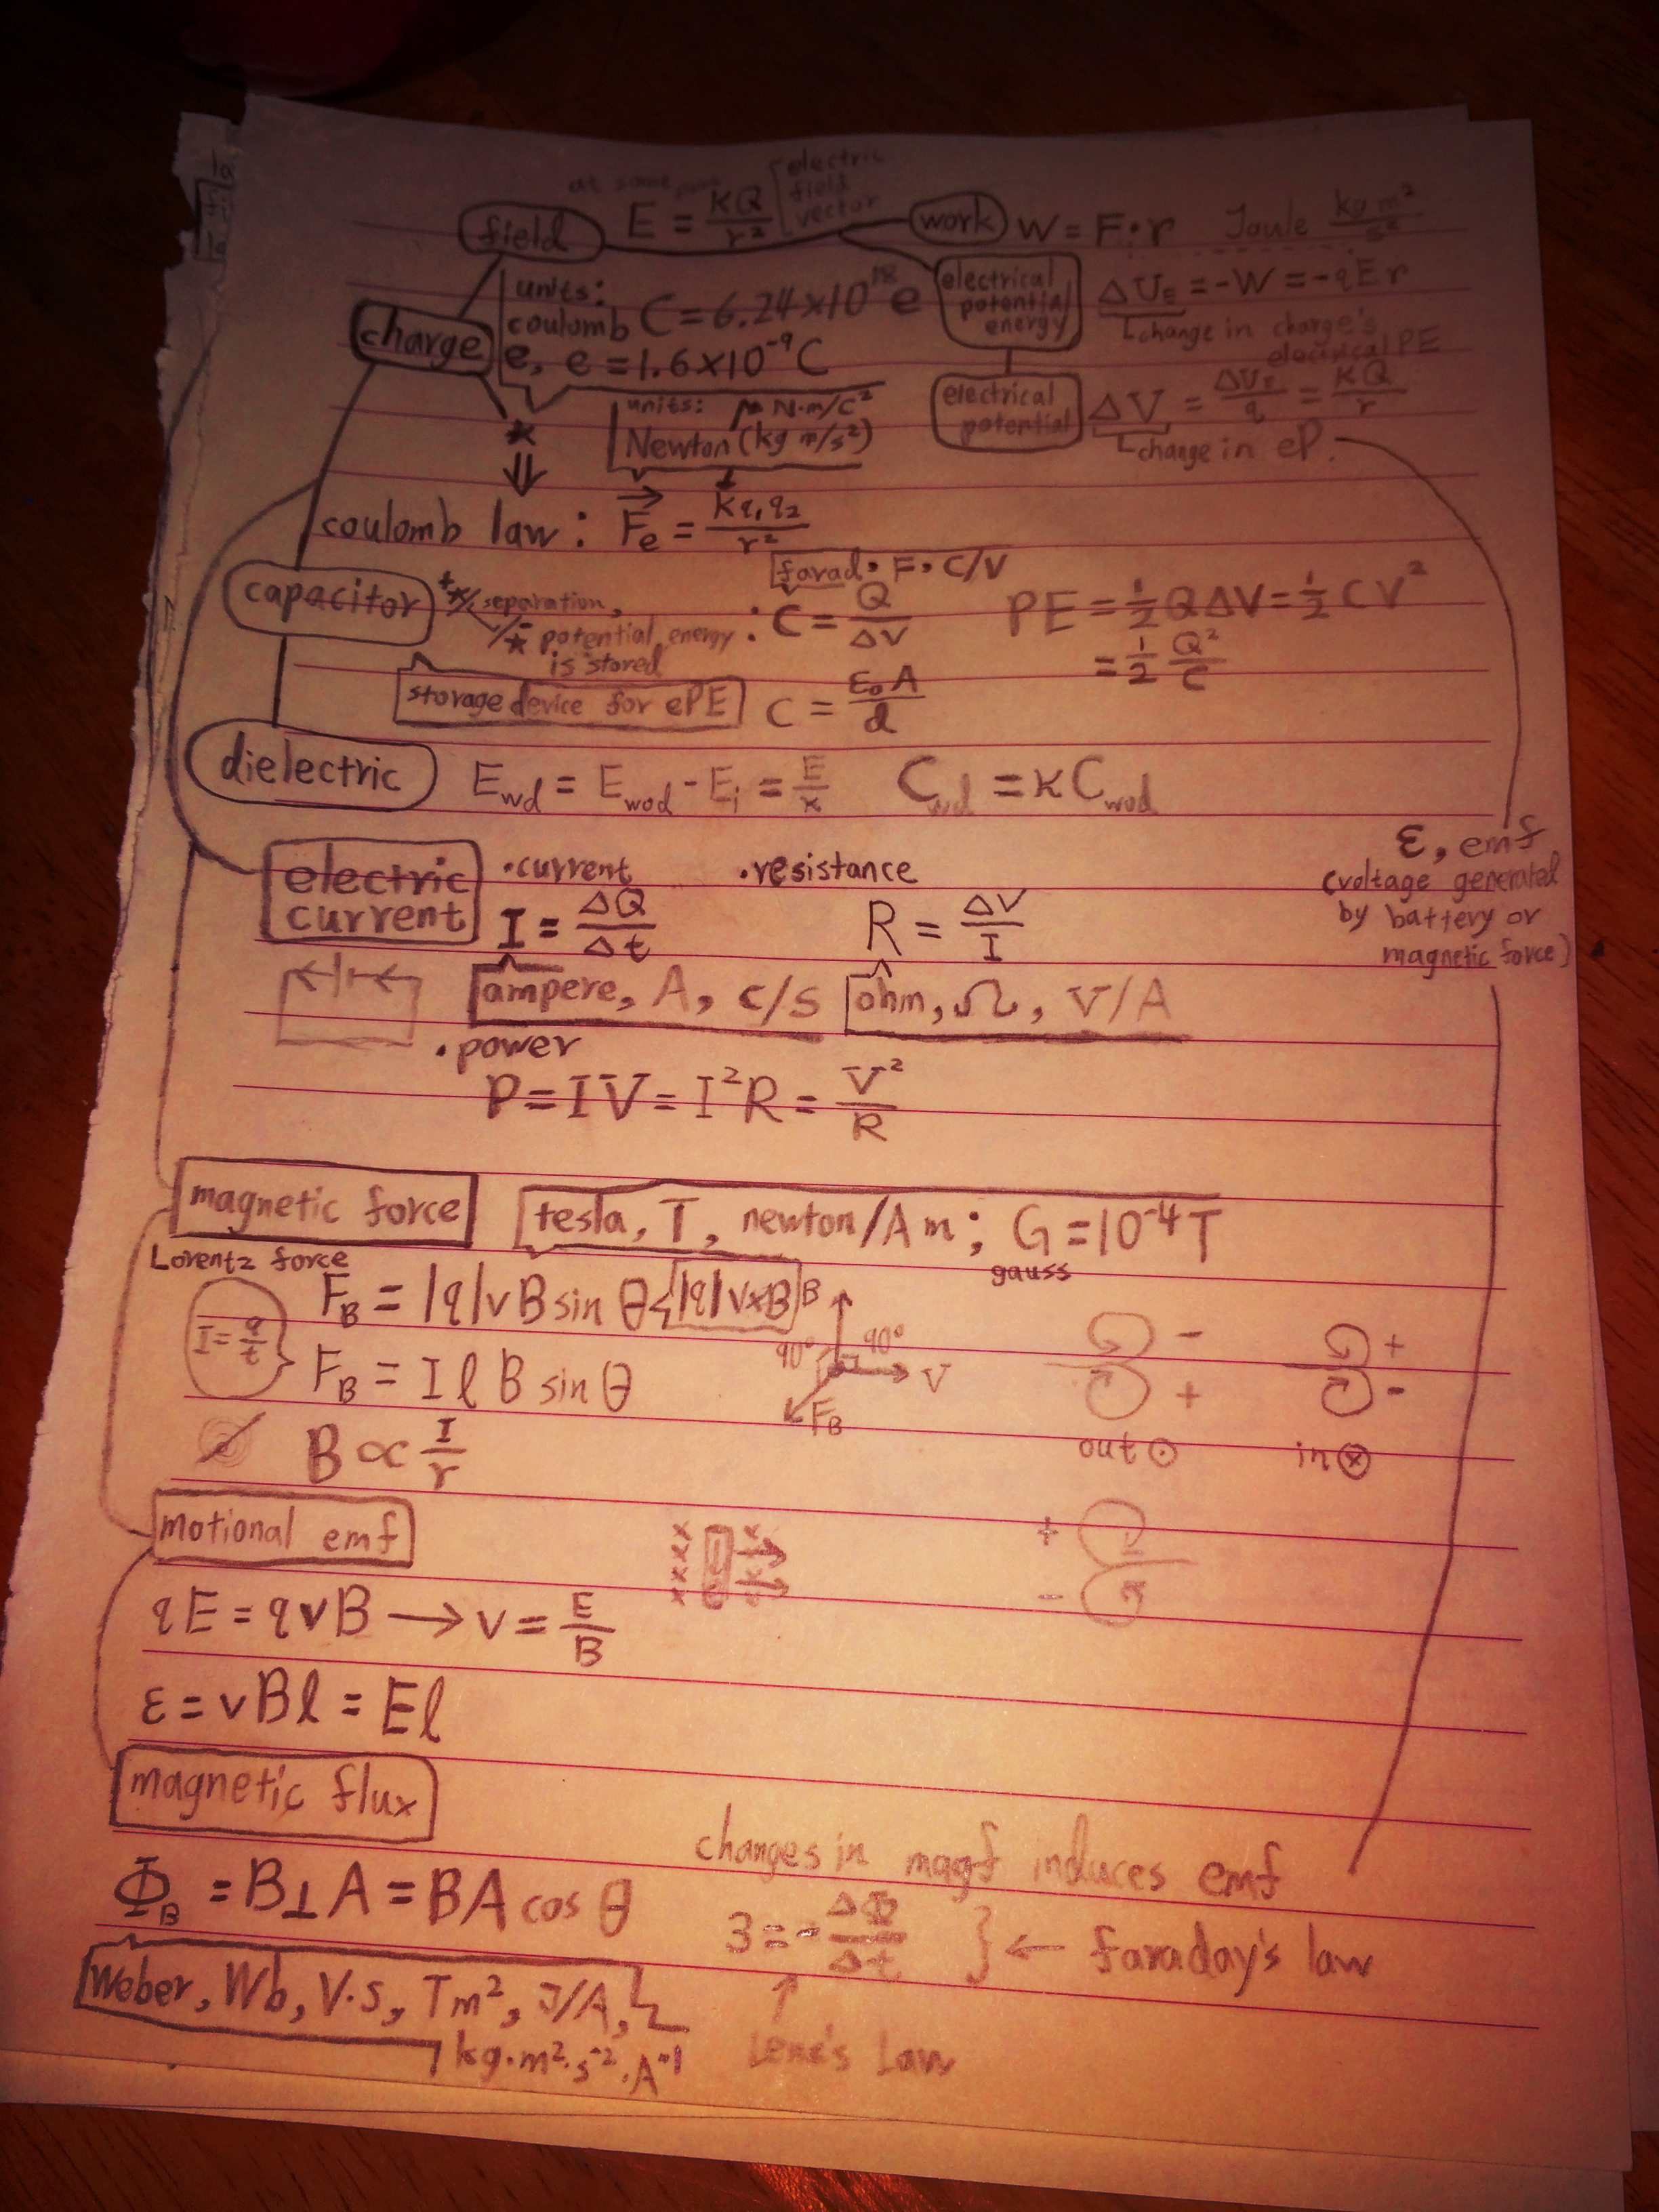 at some
field E = KQ/r² electric field vector
work W = F·r Joule kg m²/s²
charge
units:
coulomb C = 6.24×10¹⁸ e
e, e = 1.6×10⁻⁹ C
electrical potential energy ΔU_E = -W = -qEr
change in charge's electrical PE
electrical potential ΔV = ΔU_E/q = KQ/r
change in eP.
units: N·m/C²
Newton (kg m/s²)
*
⇓
coulomb law: F⃗e = Kq₁q₂/r²
capacitor + * separation,
- * potential energy is stored
: C = Q/ΔV
farad · F · C/V
PE = ½QΔV = ½CV²
= ½ Q²/C
storage device for ePE
C = ε₀A/d
dielectric E_wd = E_wod - E_i = E/κ C_wd = κC_wod
ε, emf
(voltage generated
by battery or
magnetic force)
electric current
·current ·resistance
I = ΔQ/Δt R = ΔV/I
ampere, A, C/s ohm, Ω, V/A
·power
P = IV = I²R = V²/R
magnetic force tesla, T, newton/Am; G = 10⁻⁴T
gauss
Lorentz force
F_B = |q|vB sin θ |q|v×B
I = q/t
F_B = IℓB sin θ
B 90° 90° V F_B
- + out ⊙
+ - in ⊗
B ∝ I/r
motional emf
x x x x x
+ -
qE = qvB → v = E/B
ε = vBℓ = Eℓ
magnetic flux
Φ_B = B⊥A = BA cos θ
changes in magf induces emf
3 = -ΔΦ/Δt } ← faraday's law
↑
Lenz's Law
Weber, Wb, V·s, Tm², J/A,
kg·m²·s⁻²·A⁻¹